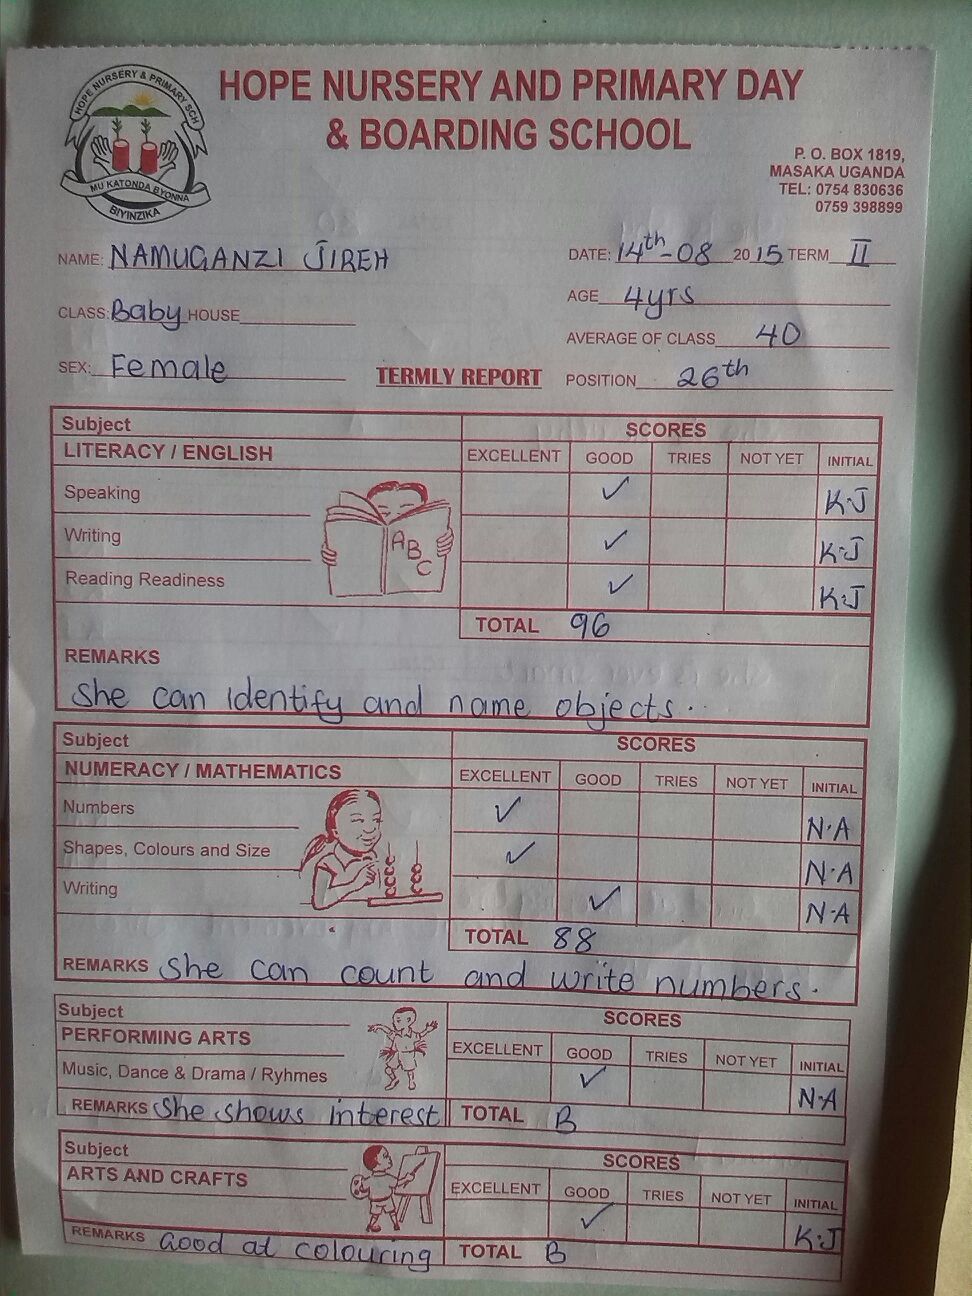 HOPE NURSERY & PRIMARY SCH
MU KATONDA BYONNA
BIYINZIKA
HOPE NURSERY AND PRIMARY DAY
& BOARDING SCHOOL
P. O. BOX 1819,
MASAKA UGANDA
TEL: 0754 830636
0759 398899
NAME: NAMUGANZI JIREH
DATE: 14th-08 2015 TERM II
CLASS: Baby HOUSE
AGE 4yrs
AVERAGE OF CLASS 40
SEX: Female
TERMLY REPORT
POSITION 26th
Subject SCORES
LITERACY / ENGLISH EXCELLENT GOOD TRIES NOT YET INITIAL
Speaking ✓ K.J
Writing ✓ K.J
Reading Readiness ✓ K.J
A B C
TOTAL 96
REMARKS
She can identify and name objects.
Subject SCORES
NUMERACY / MATHEMATICS EXCELLENT GOOD TRIES NOT YET INITIAL
Numbers ✓ N.A
Shapes, Colours and Size ✓ N.A
Writing ✓ N.A
TOTAL 88
REMARKS She can count and write numbers.
Subject SCORES
PERFORMING ARTS EXCELLENT GOOD TRIES NOT YET INITIAL
Music, Dance & Drama / Ryhmes ✓ N.A
REMARKS She shows interest TOTAL B
Subject SCORES
ARTS AND CRAFTS EXCELLENT GOOD TRIES NOT YET INITIAL
✓ K.J
REMARKS Good at colouring TOTAL B